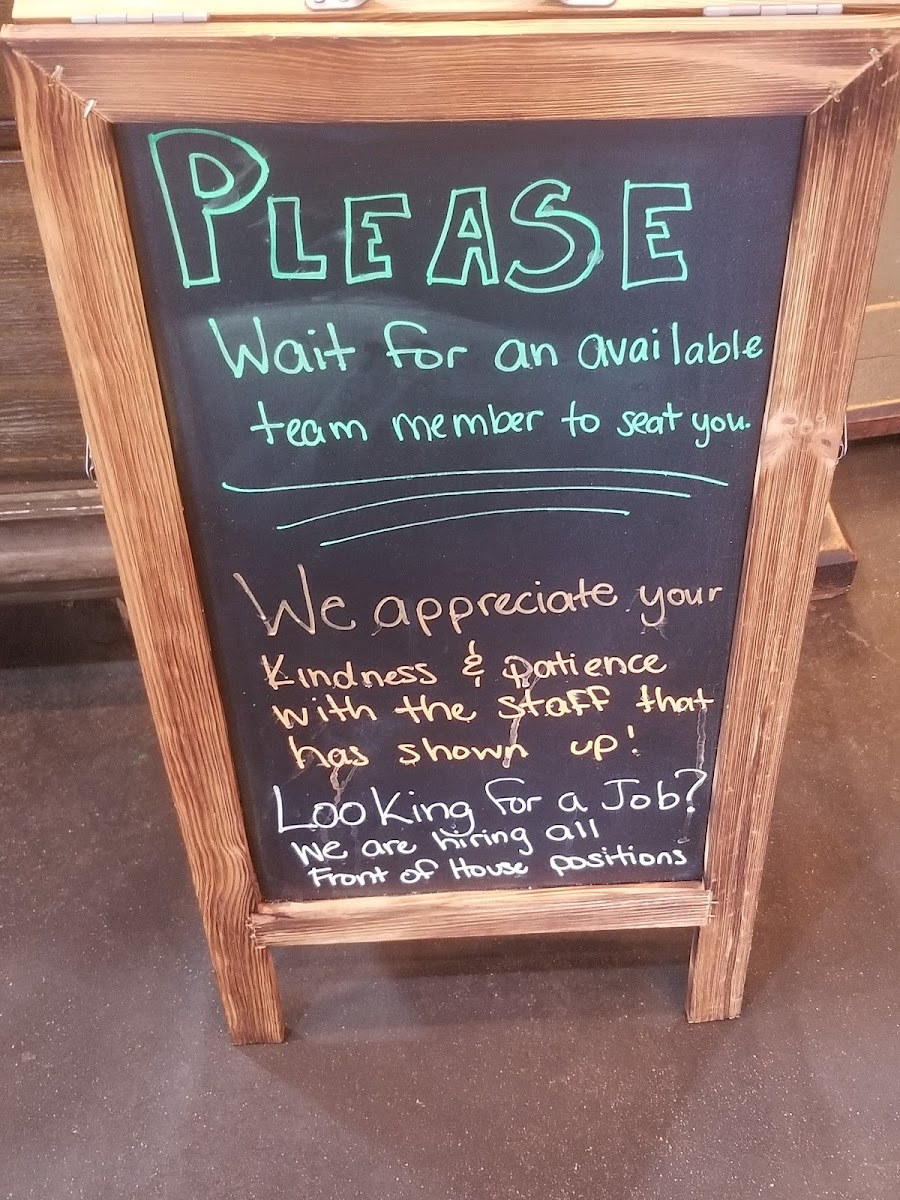 PLEASE
Wait for an available
team member to seat you.
We appreciate your
Kindness & patience
with the staff that
has shown up!
Looking for a Job?
We are hiring all
Front of House positions